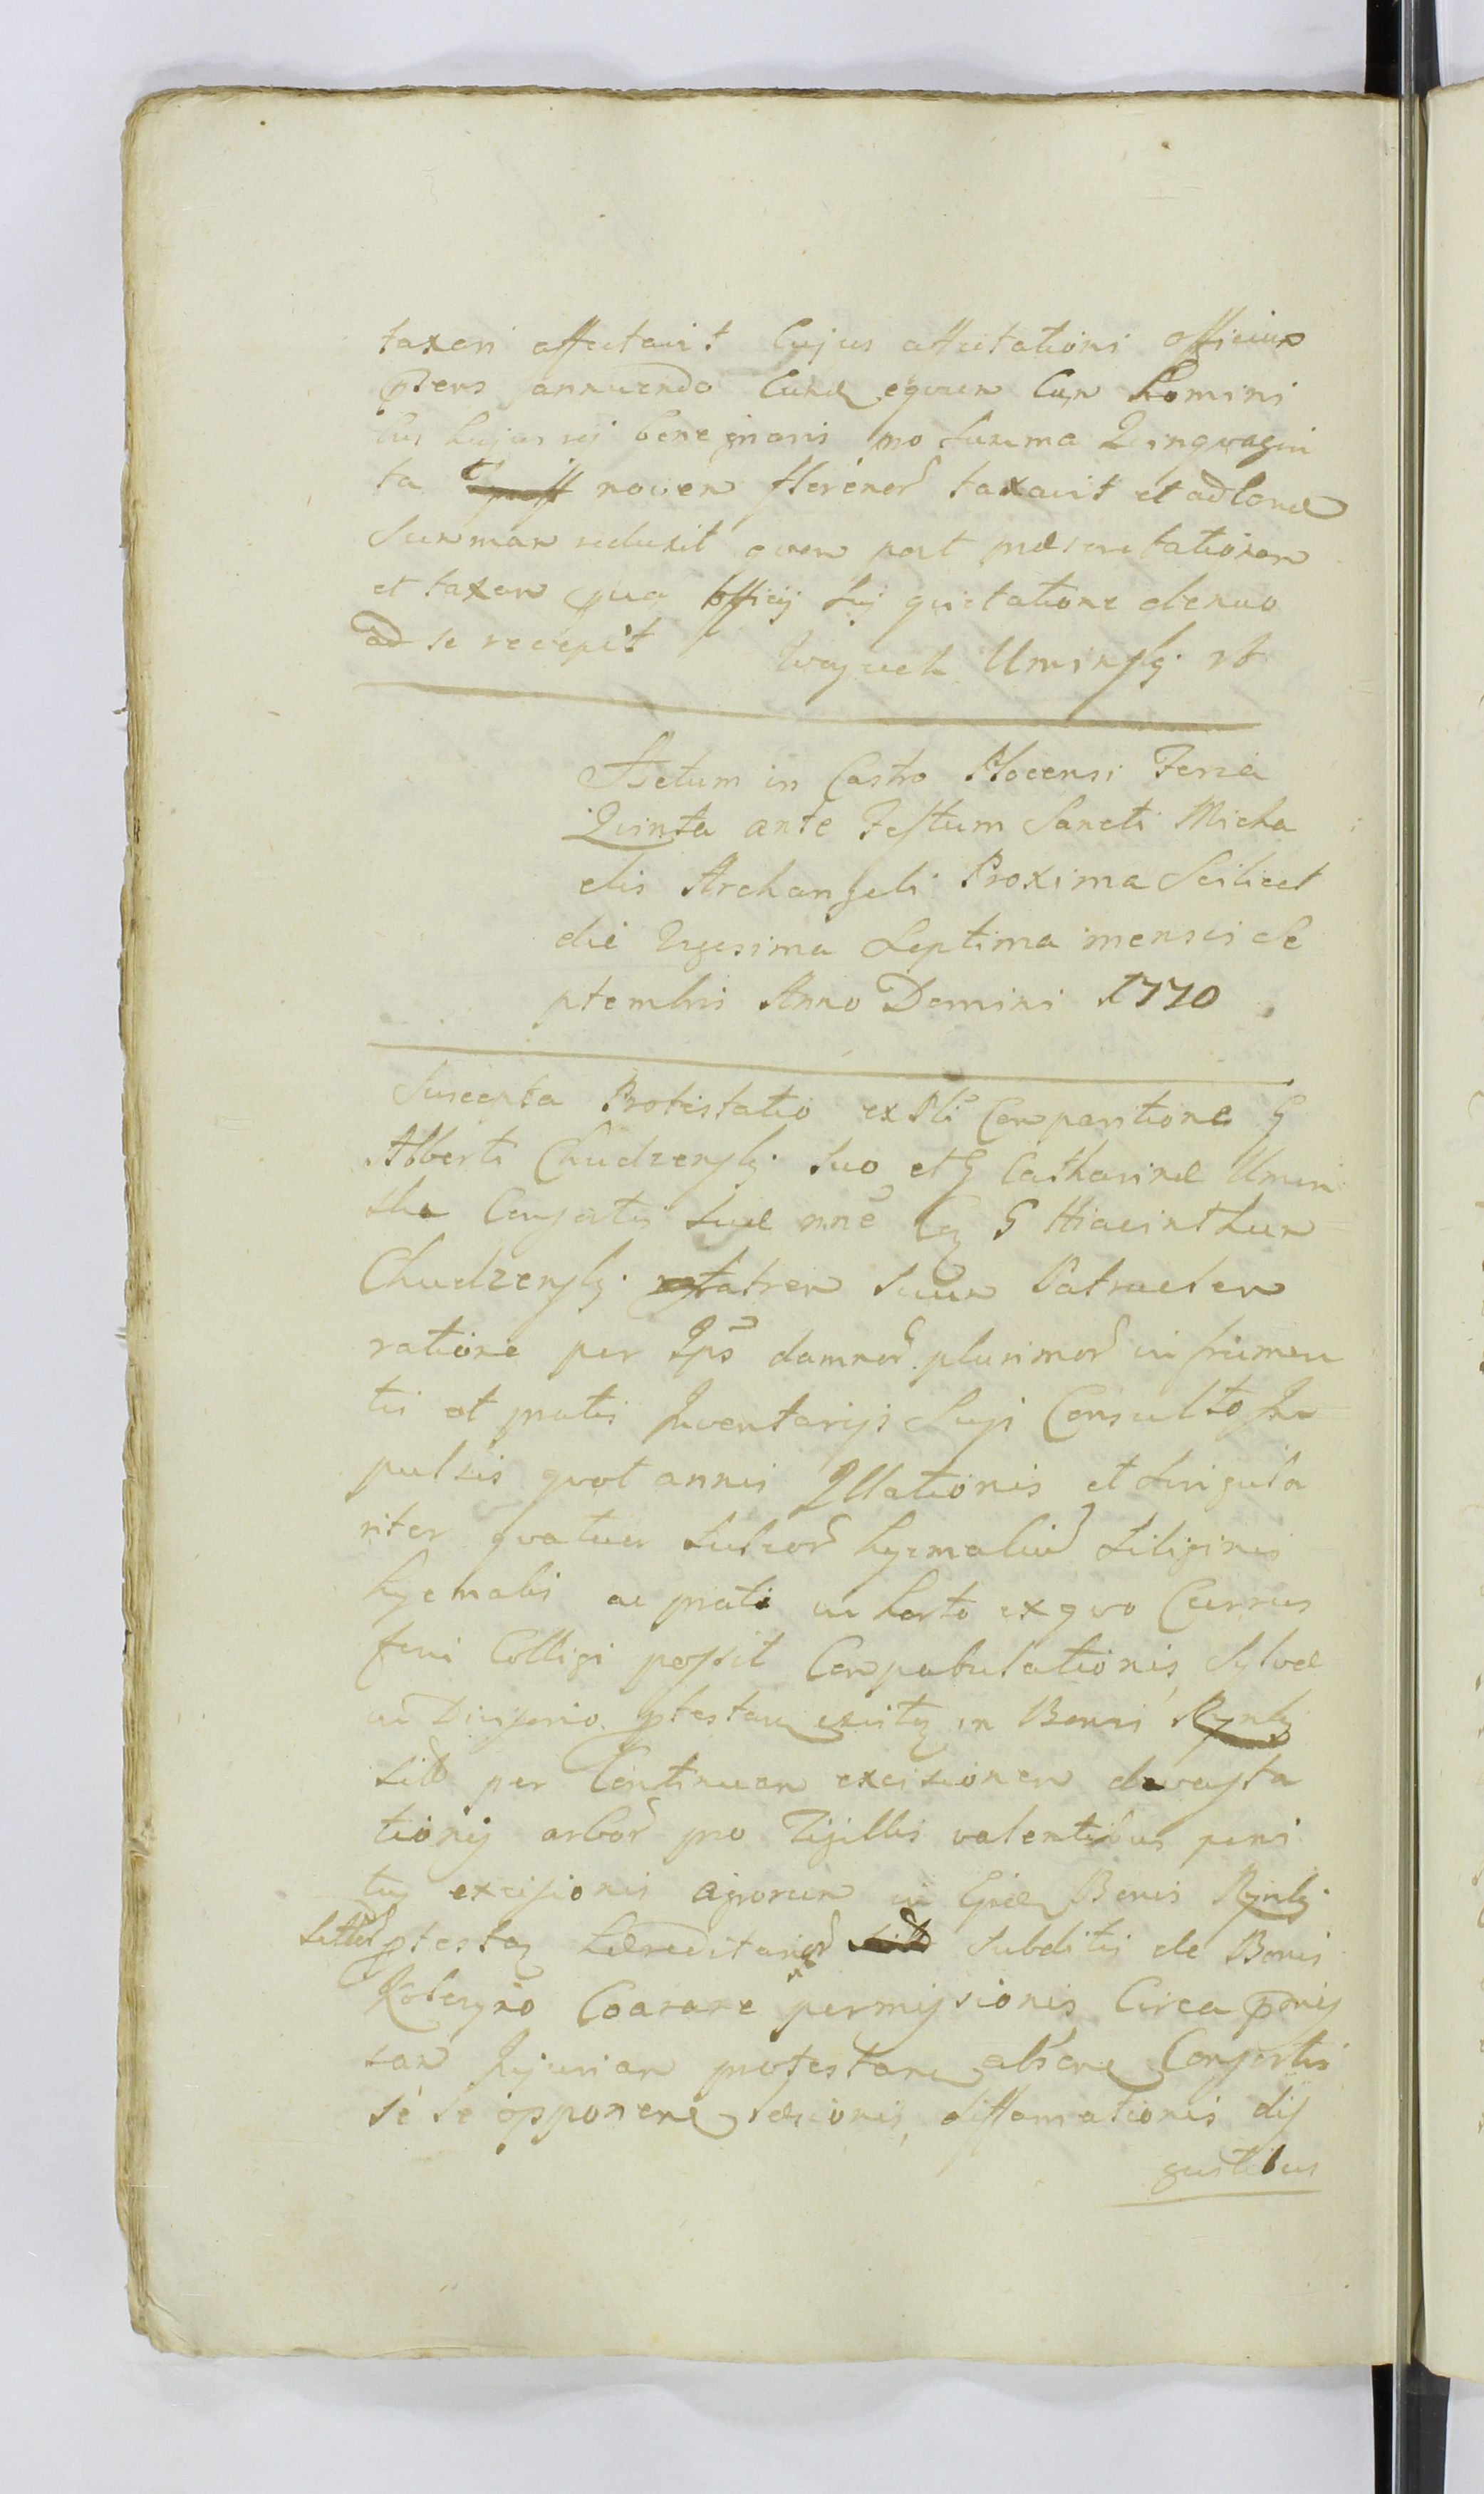 taxari affectavit Cujus affectationi officium
pñens annuendo Eund equum Cum Homini
bus hujus rej bene gnaris pro Summa Qvinqvagin
ta novem florenor taxavit et ad Eand
Summam reduxit qvem post præsentationem
et taxam qua officij Suj quietatione denuo
ad se recepit Woyciech Uminsky
Actum in Castro Plocensi Feria
Qvinta ante Festum Sancti Micha
elis Archangeli Proxima Scilicet
die Vigesima Septima mensis Se
ptembris Anno Domini 1770
Suscepta Protestatio ex Pli Comparitione G
Alberti Chudzynsky Suo et G Catharinæ Umin
ska Consortis Suæ nne Cõ G Hiacinthum
Chudzensky fratrem Suum Patruelem
ratione per Ips damnor plurimor in frumen
tis et pratis Inventarijs Suis Consulto Im
pulsis qvot annis Illationis et Singula
riter qvatuor Sulcor hyemaliu Siliginis
hyemalis ac prati in horto ex qvo Currus
feni Colligi possit Compabulationis Sylvæ
in Divisorio ptestan exist in Bonis Rynk
Sitt per Continuam excisionem devasta
tionis arbor pro Tigillis valentibus peni
tus excisionis agrorum in Eisd Bonis Rynki
Sitt ptestan hæreditarior Subditis de Bonis
Koberzyno Coarare permissionis Circa pmis
sam Injuriam protestan absen Consortis
sè se opponen læsionis diffamationis dis
gustibus